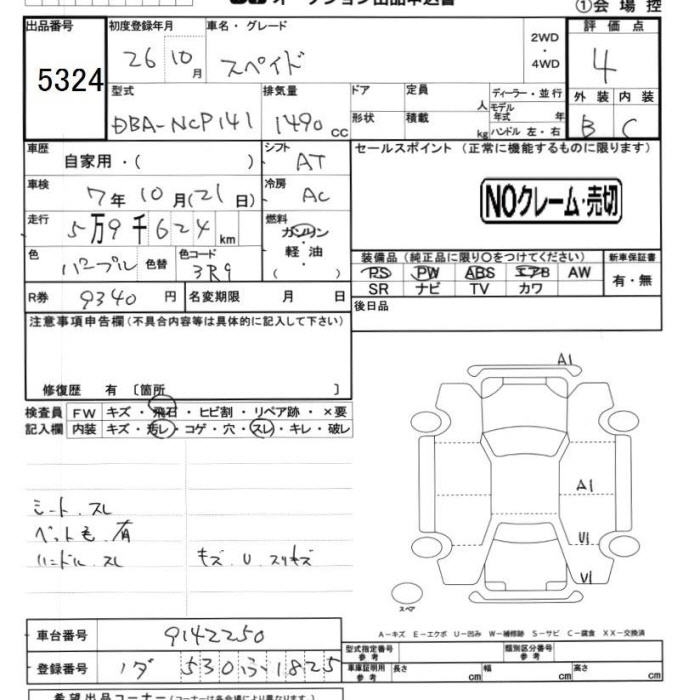 オークション出品申込書
①会場控
出品番号 初度登録年月 車名・グレード 2WD・4WD 評価点
5324 26 10月 スペイド 4
型式 排気量 ドア 定員 人 ディーラー・並行 外装 内装
DBA-NCP141 1490cc 形状 積載 kg モデル年式 年 ハンドル 左・右 B C
車歴 自家用・( ) シフト AT セールスポイント (正常に機能するものに限ります)
車検 7年10月(21日) 冷房 AC NOクレーム・売切
走行 5万9千624km 燃料 ガソリン 軽油 ( )
色 パープル 色替 色コード 3R9 装備品 (純正品に限り○をつけてください) 新車保証書
PS PW ABS エアB AW 有・無
SR ナビ TV カワ
R券 9340円 名変期限 月 日 後日品
注意事項申告欄(不具合内容等は具体的に記入して下さい)
修復歴 有 〔箇所 〕
検査員記入欄 FW キズ・飛石・ヒビ割・リペア跡・×要
内装 キズ・汚レ・コゲ・穴・スレ・キレ・破レ
A1
A1
U1
U1
シート、スレ
ペット毛、有
ハンドル、スレ キズ、U、スリキズ
スペア
A-キズ E-エクボ U-凹み W-補修跡 S-サビ C-腐食 XX-交換済
車台番号 9142250 型式指定番号 参考 類別区分番号 参考
登録番号 530 1825 車庫証明用 参考 長さ cm 幅 cm 高さ cm
希望出品コーナー(コーナーは各会場により異なります)